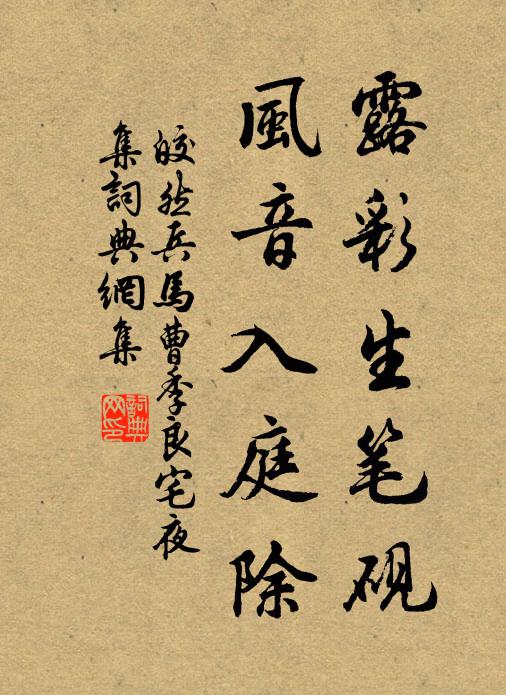 露彩生笔砚
風音入庭除
皎然兵馬曹季良宅夜
集詞典網集
詞典
网印